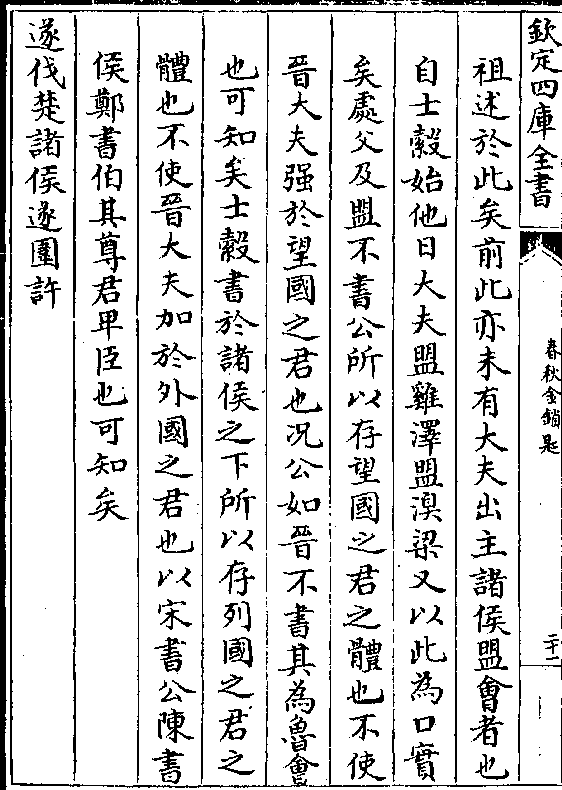 欽定四庫全書
春秋金鎖匙
二十一
祖述於此矣前此亦未有大夫出主諸侯盟會者也
自士縠始他日大夫盟雞澤盟溴梁又以此為口實
矣處父及盟不書公所以存望國之君之體也不使
晉大夫强於望國之君也况公如晉不書其為魯會
也可知矣士縠書於諸侯之下所以存列國之君之
體也不使晉大夫加於外國之君也以宋書公陳書
侯鄭書伯其尊君卑臣也可知矣
遂伐楚諸侯遂圍許